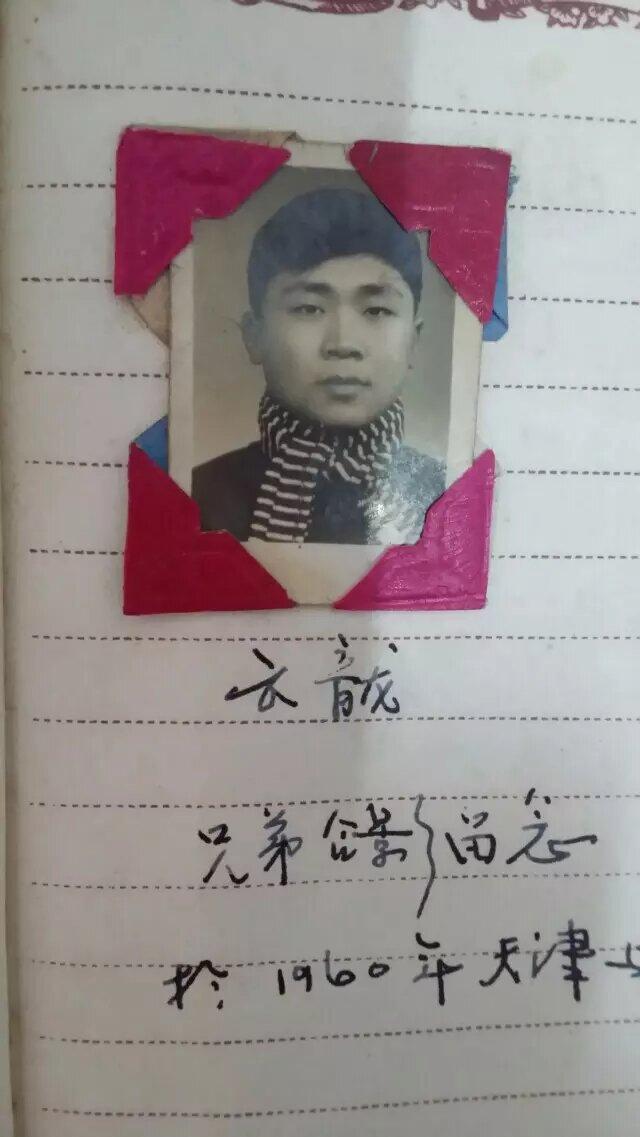 云龍
兄弟合影留念
於1960年天津